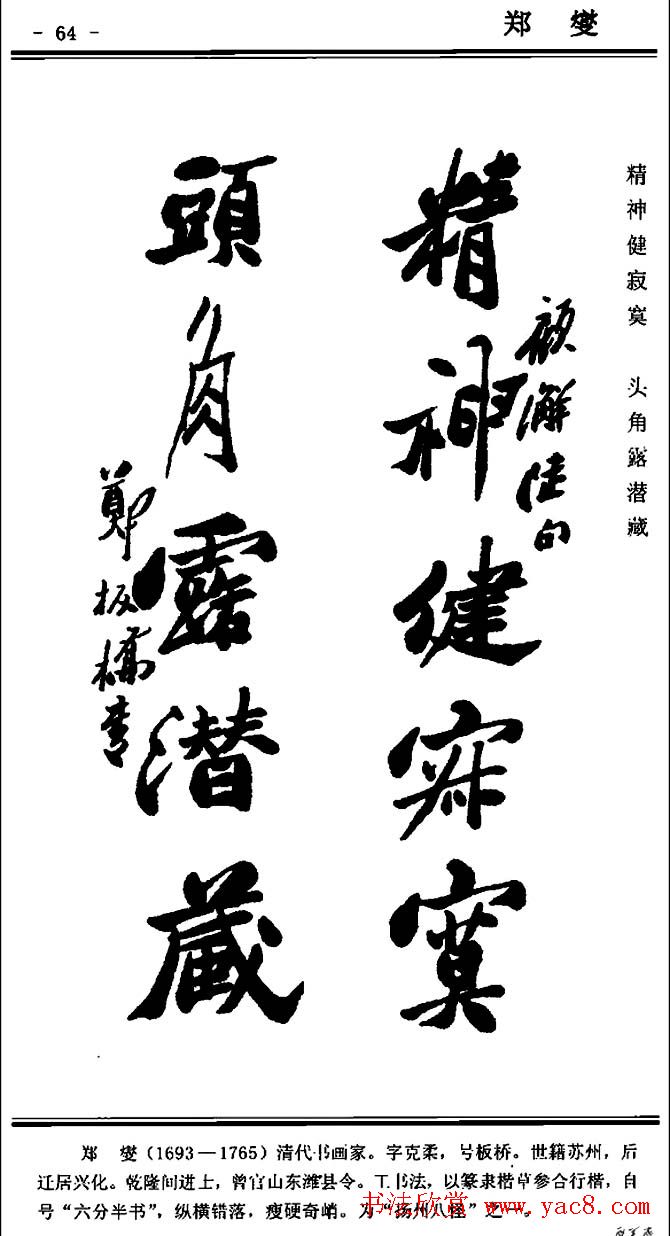 - 64 -
郑 燮
精神健寂寞 头角露潜藏
精神健寂寞
頭角露潜藏
鄭板橋書
郑 燮（1693—1765）清代书画家。字克柔，号板桥。世籍苏州，后
迁居兴化。乾隆间进士，曾官山东潍县令。工书法，以篆隶楷草参合行楷，自
号“六分半书”，纵横错落，瘦硬奇峭。为“扬州八怪”之一。
书法欣赏 www.yac8.com